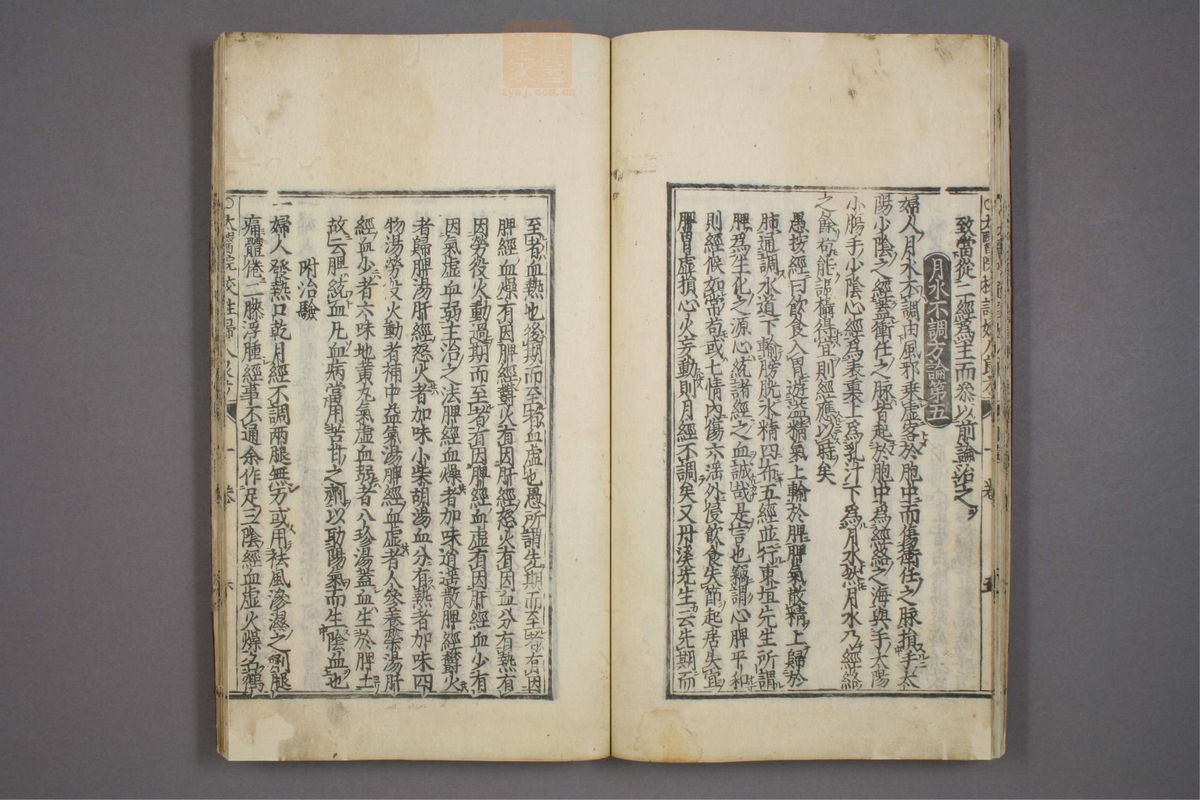 致當從二經為主而叅以前論治之
月水不調方論第五
婦人月水不調由風邪乗虛客於胞中而傷衝任之脉損手太
陽少陰之經蓋衝任之脉皆起於胞中為經絡之海與手太陽
小腸手少陰心經為表裏上為乳汁下為月水然月水乃經絡
之餘苟能調攝得宜則經應以時矣
愚按經曰飲食入胃遊溢精氣上輸於脾脾氣散精上歸於
肺通調水道下輸膀胱水精四布五經並行東垣先生所謂
脾為生化之源心統諸經之血誠哉是言也竊謂心脾平和
則經候如常苟或七情內傷六淫外侵飲食失節起居失宜
脾胃虛損心火妄動則月經不調矣又丹溪先生云先期而
至者血熱也後期而至者血虛也愚所謂先期而至者有因
脾經血燥有因脾經鬱火有因肝經怒火有因血分有熱有
因勞役火動過期而至者有因脾經血虛有因肝經血少有
因氣虛血弱主治之法脾經血燥者加味逍遙散脾經鬱火
者歸脾湯肝經怒火者加味小柴胡湯血分有熱者加味四
物湯勞役火動者補中益氣湯脾經血虛者人參養榮湯肝
經血少者六味地黃丸氣虛血弱者八珍湯蓋血生於脾土
故云脾統血凡血病當用苦甘之劑以助陽氣而生陰血也
附治驗
一婦人發熱口乾月經不調兩腿無力或用祛風滲濕之劑腿
痛體倦二膝浮腫經事不通余作足三陰經血虛火燥名鶴
○太醫院校註婦人良方 一卷 六